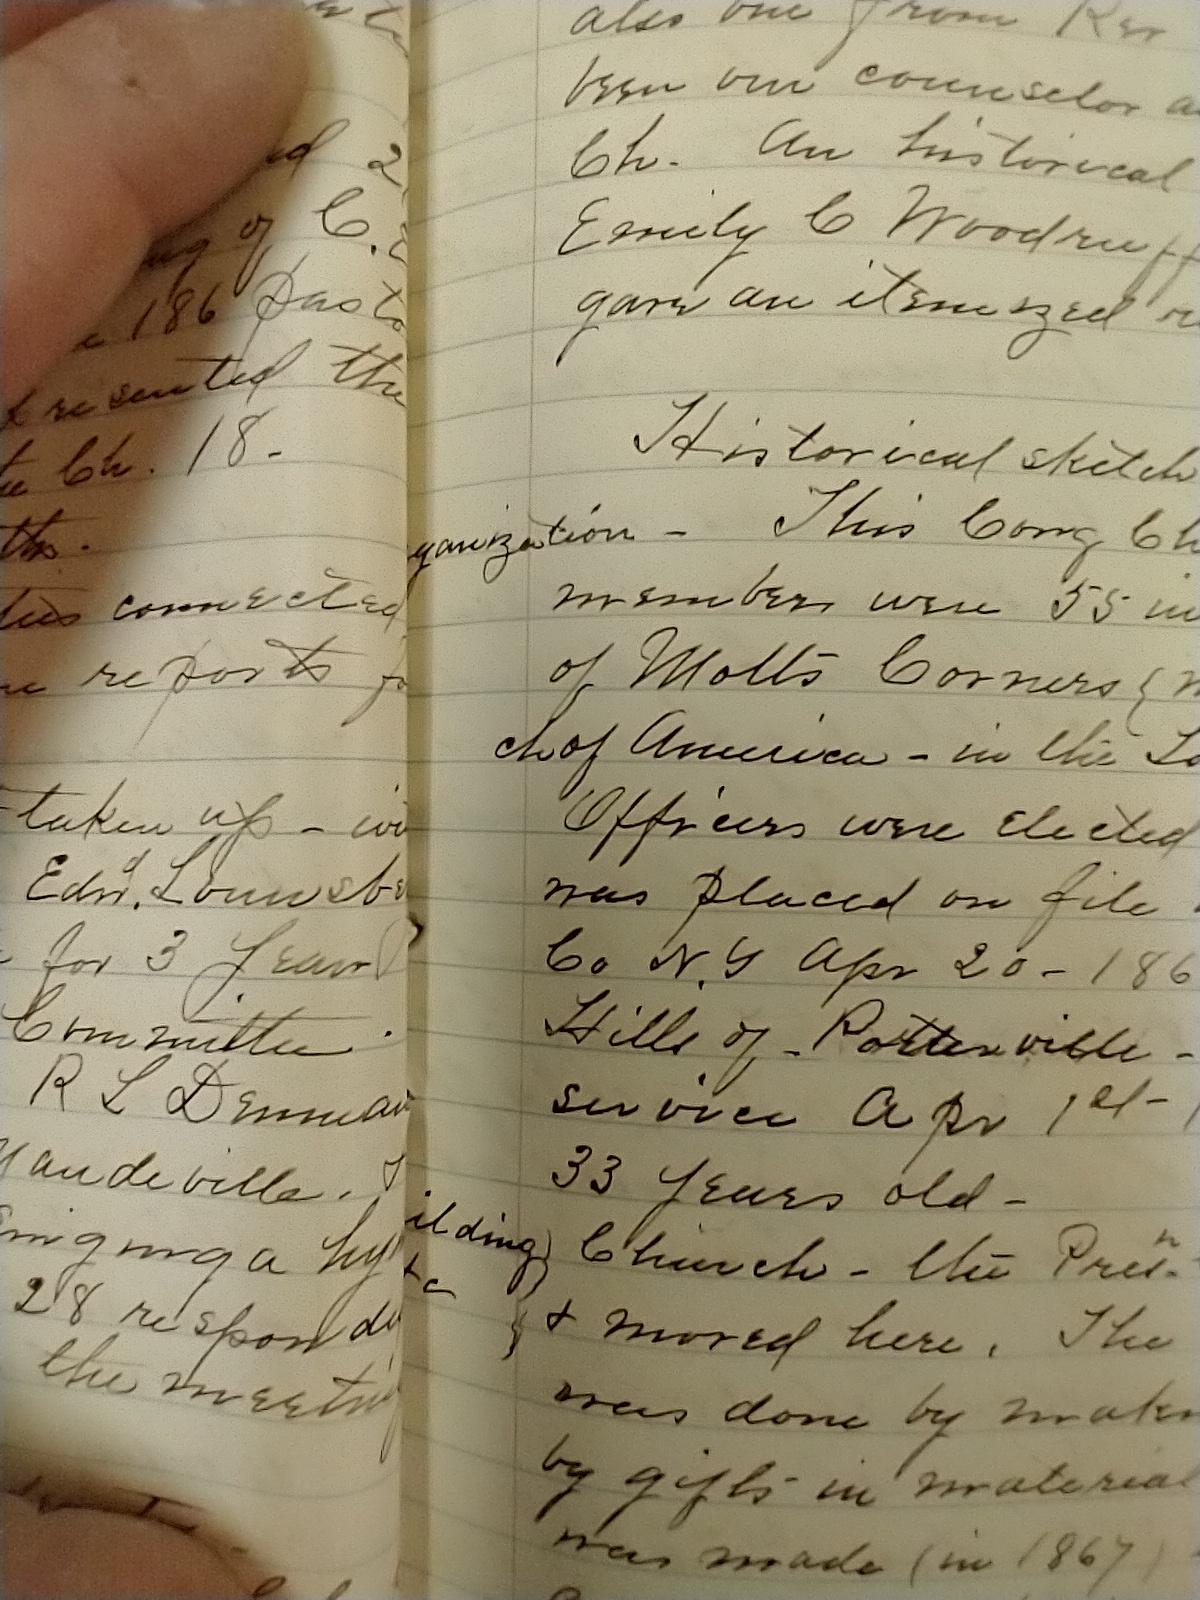 2
of C.
186 pasto
resented the
Ch. 18-
ths.
connected
reports fo
taken up - wi
Edwd. Lounsbe
for 3 years
Committee.
R L Denman
Mandeville. I
hy
28 respond
the meetin
also one from Rev
been our counselor a
Ch. An historical
Emily C Woodruff
gave an itemized r
Historical sketch
ganization - This Cong Ch
members were 55 in
of Motts Corners {
ch of America - in the To
Officers were elected
was placed on file
Co N.Y Apr 20 - 186
Hills of - Porterville -
service Apr 1st -
33 years old -
ilding) Church - the Presn.
tc { + moved here. The
was done by maki
by gifts in material
was made (in 1867)